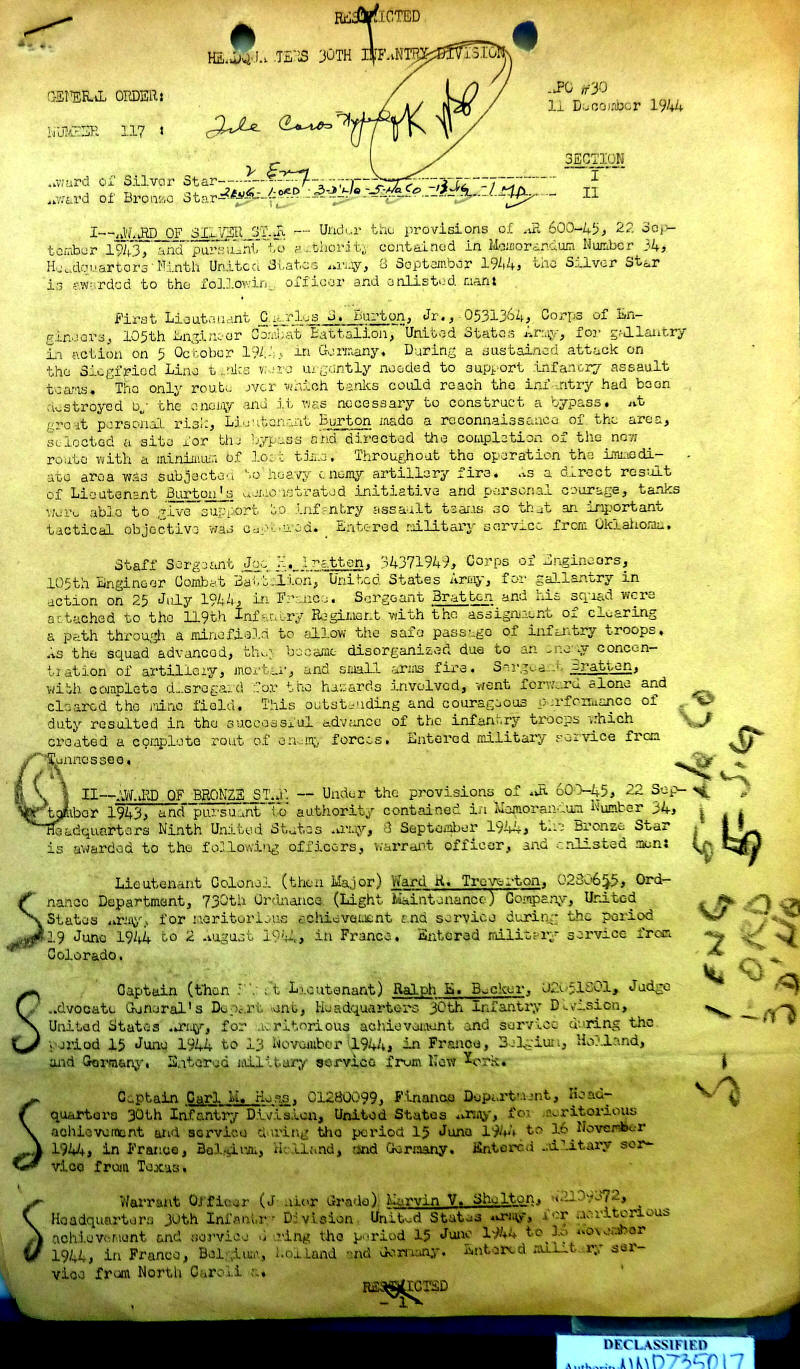 RESTRICTED
HEADQUARTERS 30TH INFANTRY DIVISION
GENERAL ORDER:
APO #30
11 December 1944
NUMBER 117 :
File
SECTION
2 Eng
Award of Silver Star-- I
Award of Bronze Star-- II
I--AWARD OF SILVER STAR -- Under the provisions of AR 600-45, 22 Sep-
tember 1943, and pursuant to authority contained in Memorandum Number 34,
Headquarters Ninth United States Army, 8 September 1944, the Silver Star
is awarded to the following officer and enlisted man:
First Lieutenant Charles S. Burton, Jr., 0531364, Corps of En-
gineers, 105th Engineer Combat Battalion, United States Army, for gallantry
in action on 5 October 1944, in Germany. During a sustained attack on
the Siegfried Line tanks were urgently needed to support infantry assault
teams. The only route over which tanks could reach the infantry had been
destroyed by the enemy and it was necessary to construct a bypass. At
great personal risk, Lieutenant Burton made a reconnaissance of the area,
selected a site for the bypass and directed the completion of the new
route with a minimum of lost time. Throughout the operation the immedi-
ate area was subjected to heavy enemy artillery fire. As a direct result
of Lieutenant Burton's demonstrated initiative and personal courage, tanks
were able to give support to infantry assault teams so that an important
tactical objective was captured. Entered military service from Oklahoma.
Staff Sergeant Joe Bratten, 34371949, Corps of Engineers,
105th Engineer Combat Battalion, United States Army, for gallantry in
action on 25 July 1944, in France. Sergeant Bratten and his squad were
attached to the 119th Infantry Regiment with the assignment of clearing
a path through a minefield to allow the safe passage of infantry troops.
As the squad advanced, they became disorganized due to an enemy concen-
tration of artillery, mortar, and small arms fire. Sergeant Bratten,
with complete disregard for the hazards involved, went forward alone and
cleared the mine field. This outstanding and courageous performance of
duty resulted in the successful advance of the infantry troops which
created a complete rout of enemy forces. Entered military service from
Tennessee.
II--AWARD OF BRONZE STAR -- Under the provisions of AR 600-45, 22 Sep-
tember 1943, and pursuant to authority contained in Memorandum Number 34,
Headquarters Ninth United States Army, 8 September 1944, the Bronze Star
is awarded to the following officers, warrant officer, and enlisted men:
Lieutenant Colonel (then Major) Ward R. Treverton, Ord-
nance Department, 730th Ordnance (Light Maintenance) Company, United
States Army, for meritorious achievement and service during the period
19 June 1944 to 2 August 1944, in France. Entered military service from
Colorado.
Captain (then First Lieutenant) Ralph E. Becker, 02051801, Judge
Advocate General's Department, Headquarters 30th Infantry Division,
United States Army, for meritorious achievement and service during the
period 15 June 1944 to 13 November 1944, in France, Belgium, Holland,
and Germany. Entered military service from New York.
Captain Carl M. Hess, 01280099, Finance Department, Head-
quarters 30th Infantry Division, United States Army, for meritorious
achievement and service during the period 15 June 1944 to 16 November
1944, in France, Belgium, Holland, and Germany. Entered military ser-
vice from Texas.
Warrant Officer (Junior Grade) Marvin V. Shelton, W2109372,
Headquarters 30th Infantry Division United States Army, for meritorious
achievement and service during the period 15 June 1944 to November
1944, in France, Belgium, Holland and Germany. Entered military ser-
vice from North Carolina.
RESTRICTED
- 1 -
DECLASSIFIED
Authority NND735017